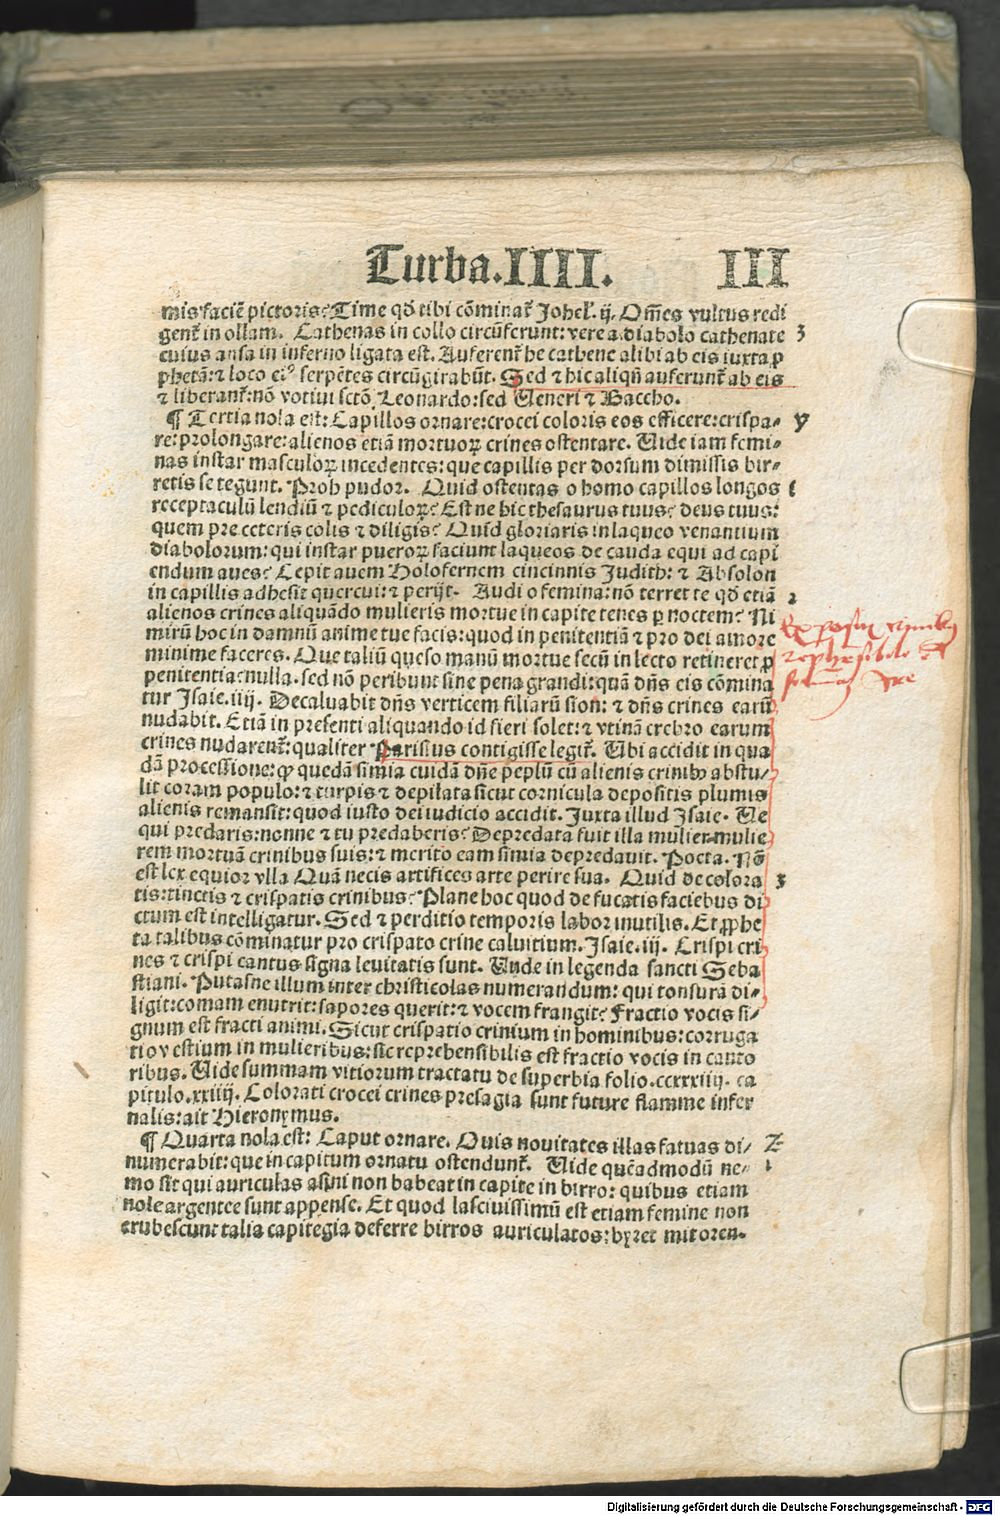 Turba.IIII. III
mis faciē pictoris? Time qđ tibi cōminat᷑ Johel᷑. ij. Om̄es vultus redi
gent᷑ in ollam. Cathenas in collo circūferunt: vere a diabolo cathenate 3
cuius ansa in inferno ligata est. Auferent᷑ he cathene alibi ab eis iuxta ꝓ
phetā: ⁊ loco eiꝰ serpētes circūgirabūt. Sed ⁊ hic aliqñ auferunt᷑ ab eis
⁊ liberant᷑: nō votiui sctō Leonardo: sed Veneri ⁊ Baccho.
¶ Tertia nola est: Capillos ornare: crocei coloris eos efficere: crispa⸗ y
re: prolongare: alienos etiā mortuoꝝ crines ostentare. Vide iam femi⸗
nas instar masculoꝝ incedentes: que capillis per dorsum dimissis bir⸗
retis se tegunt. Proh pudor. Quid ostentas o homo capillos longos 1
receptaculū lendiū ⁊ pediculoꝝ? Est ne hic thesaurus tuus? deus tuus:
quem pre ceteris colis ⁊ diligis? Quid gloriaris in laqueo venantium
diabolorum: qui instar pueroꝝ faciunt laqueos de cauda equi ad capi
endum aues? Cepit auem Holofernem cincinnis Judith: ⁊ Absolon
in capillis adhesit quercui: ⁊ perijt. Audi o femina: nō terret te qđ etiā 2
alienos crines aliquādo mulieris mortue in capite tenes ꝑ noctem? Ni
mirū hoc in damnū anime tue facis: quod in penitentiā ⁊ pro dei amore
minime faceres. Que taliū queso manū mortue secū in lecto retineret ꝓ
penitentia: nulla. sed nō peribunt sine pena grandi: quā dn̄s eis cōmina
tur Isaie. iiij. Decaluabit dn̄s verticem filiarū sion: ⁊ dn̄s crines earū
nudabit. Etiā in presenti aliquando id fieri solet: ⁊ vtinā crebro earum
crines nudarent᷑: qualiter Parisius contigisse legit᷑. Ubi accidit in qua
dā processione: ꝙ quedā simia cuidā dn̄e peplū cū alienis crinibꝰ abstu⸗
lit coram populo: ⁊ turpis ⁊ depilata sicut cornicula depositis plumis
alienis remansit: quod iusto dei iudicio accidit. Juxta illud Isaie. Ve
qui predaris: nonne ⁊ tu predaberis? Depredata fuit illa mulier mulie
rem mortuā crinibus suis: ⁊ merito eam simia depredauit. Poeta. Nō
est lex equior vlla Quā necis artifices arte perire sua. Quid de colora 3
tis: tinctis ⁊ crispatis crinibus? Plane hoc quod de fucatis faciebus di
ctum est intelligatur. Sed ⁊ perditio temporis labor inutilis. Et ꝓphe
ta talibus cōminatur pro crispato crine caluitium. Isaie. iij. Crispi cri
nes ⁊ crispi cantus signa leuitatis sunt. Unde in legenda sancti Seba
stiani. Putasne illum inter christicolas numerandum: qui tonsurā di⸗
ligit: comam enutrit: sapores querit: ⁊ vocem frangit? Fractio vocis si⸗
gnum est fracti animi. Sicut crispatio crinium in hominibus: corruga
tio vestium in mulieribus: sic reprehensibilis est fractio vocis in canto
ribus. Vide summam vitiorum tractatu de superbia folio. ccxxxiiij. ca
pitulo. xxiiij. Colorati crocei crines presagia sunt future flamme infer
nalis: ait Hieronymus.
¶ Quarta nola est: Caput ornare. Quis nouitates illas fatuas di⸗ Z
numerabit: que in capitum ornatu ostendunt᷑. Vide quēadmodū ne⸗ 1
mo sit qui auriculas asini non habeat in capite in birro: quibus etiam
nole argentee sunt appense. Et quod lasciuissimū est etiam femine non
erubescunt talia capitegia deferre birros auriculatos: hyret mitoren.
Digitalisierung gefördert durch die Deutsche Forschungsgemeinschaft - DFG